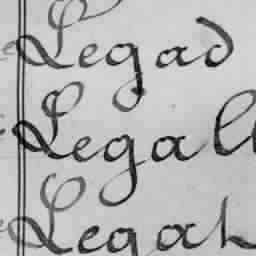 Legad
Legall
Legah